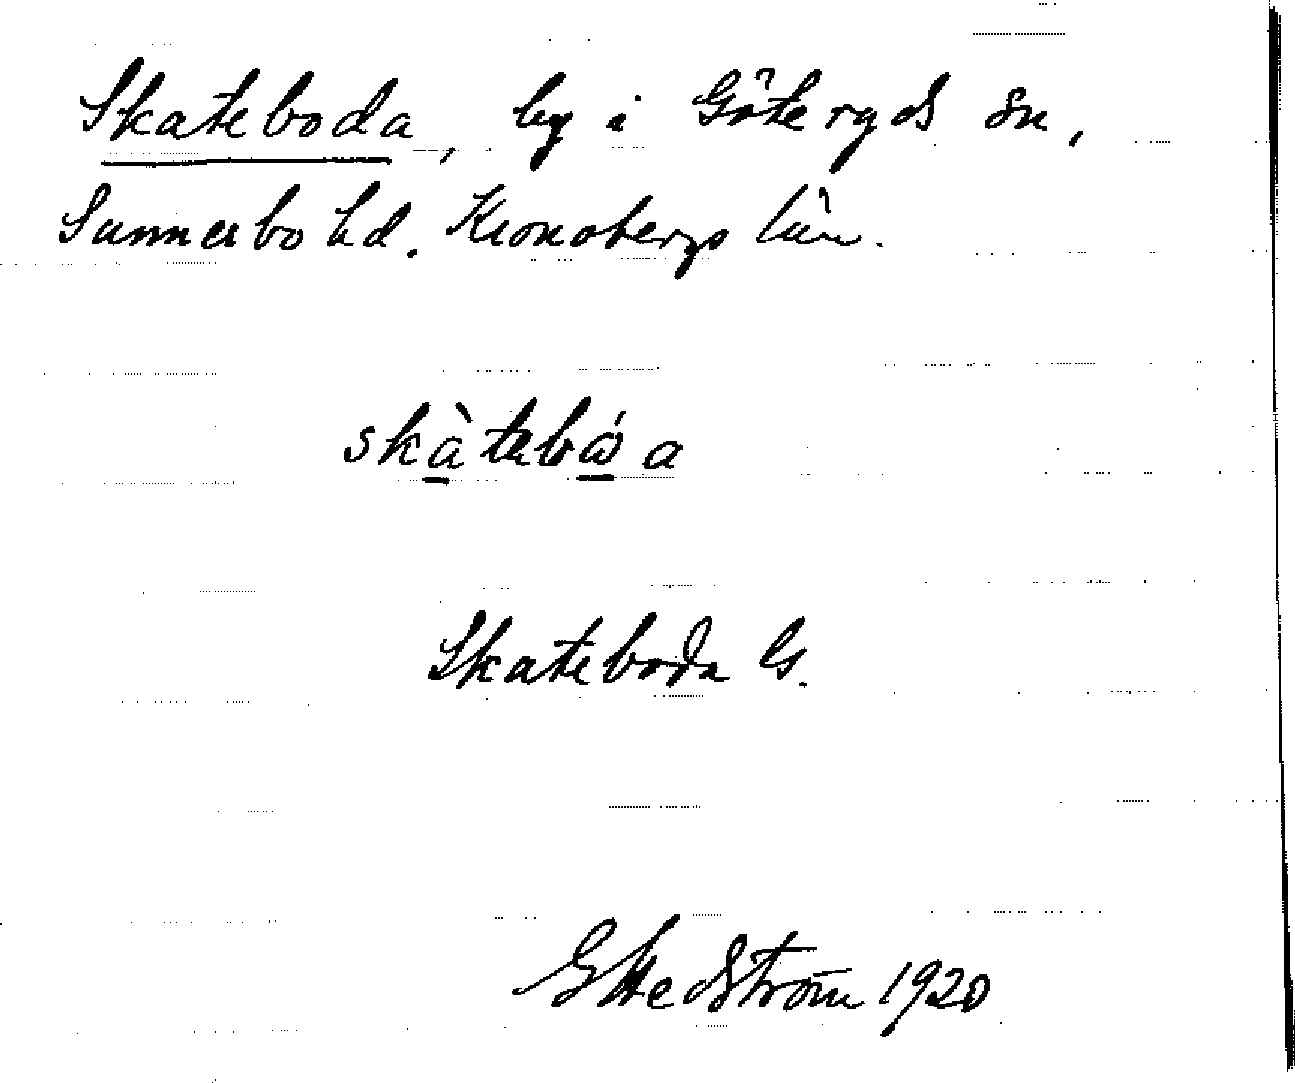 Skateboda, by i Göteryds sn,
Sunnerbo hd. Kronobergs län.
skàtebǻa
Skateboda G.
G Hedström 1920